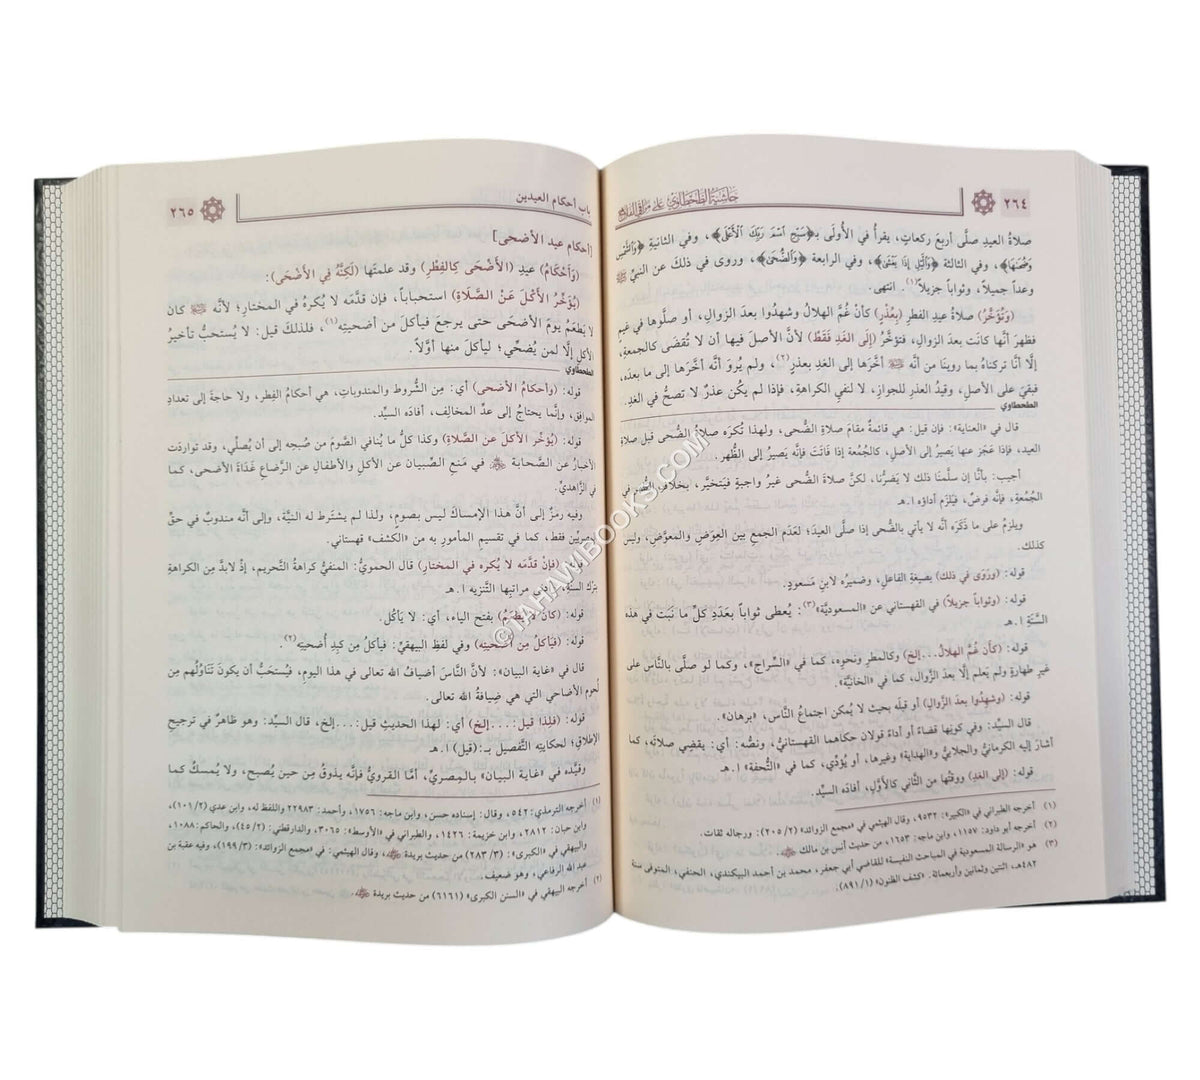 ٢٦٤
حَاشِيَةُ الطَّحْطَاوِيِّ عَلَى مَرَاقِي الفَلَاحِ
صلاةُ العيدِ صلَّى أربعَ ركعاتٍ، يقرأُ في الأُولَى بـ﴿سَبِّحِ اسْمَ رَبِّكَ الْأَعْلَى﴾، وفي الثانيةِ ﴿وَالشَّمْسِ
وَضُحَاهَا﴾، وفي الثالثة ﴿وَاللَّيْلِ إِذَا يَغْشَى﴾، وفي الرابعة ﴿وَالضُّحَى﴾، وروى في ذلكَ عن النبيِّ ﷺ
وعداً جميلاً، وثواباً جزيلاً(١). انتهى.
(وَتُؤَخَّرُ) صلاةُ عيدِ الفطرِ (بِعُذْرٍ) كأنْ غُمَّ الهلالُ وشهدُوا بعدَ الزوالِ، أو صلَّوها في غيمٍ
فظهرَ أنَّها كانت بعدَ الزوالِ، فتؤخَّرُ (إِلَى الغَدِ فَقَطْ) لأنَّ الأصلَ فيها أن لا تُقضَى كالجمعةِ،
إلَّا أنَّا تركناهُ بما روينا من أنَّه ﷺ أخَّرَها إلى الغدِ بعذرٍ(٢)، ولم يُروَ أنَّه أخَّرَها إلى ما بعدَه،
فبقيَ على الأصلِ، وقيدُ العذرِ للجوازِ، لا لنفيِ الكراهةِ، فإذا لم يكُن عذرٌ لا تصحُّ في الغدِ.
الطحطاوي
قال في «العناية»: فإن قيل: هي قائمةٌ مقامَ صلاةِ الضُّحى، ولهذا تُكرَه صلاةُ الضُّحى قبلَ صلاةِ
العيد، فإذا عَجَز عنها يَصيرُ إلى الأصلِ، كالجُمُعة إذا فَاتَت فإنَّه يَصيرُ إلى الظُّهر.
أُجيب: بأنَّا إن سلَّمنَا ذلك لا يَضرُّنا، لكنَّ صلاةَ الضُّحى غيرُ واجبةٍ فيتخيَّر، بخلافِ الظُّهر في
الجُمُعةِ، فإنَّه فرضٌ، فيَلزَم أداؤه ا.هـ
ويلزمُ على ما ذَكَره أنَّه لا يأتي بالضُّحى إذا صلَّى العيدَ؛ لعَدَمِ الجمعِ بين العِوَضِ والمعوَّضِ، وليس
كذلك.
قوله: (ورَوَى في ذلك) بصيغةِ الفاعلِ، وضميرُه لابنِ مَسعودٍ.
قوله: (وثَواباً جَزيلاً) في القهستاني عن «المسعوديَّة»(٣): يُعطى ثواباً بعَدَدِ كلِّ ما نَبَت في هذه
السَّنَةِ ا.هـ
قوله: (كأن غُمَّ الهلالُ...إلخ) وكالمطرِ ونحوِه، كما في «السِّراج»، وكما لو صلَّى بالنَّاس على
غيرِ طهارةٍ ولم يَعلم إلَّا بعدَ الزَّوال، كما في «الخانيَّة».
قوله: (وشهِدُوا بعدَ الزَّوالِ) أو قبلَه بحيث لا يُمكن اجتماعُ النَّاس، «برهان».
قال السيِّد: وفي كونِها قضاءً أو أداءً قولان حكاهما القهستانيُّ، ونصُّه: أي: يقضِي صلاتَه، كما
أشارَ إليه الكرمانيُّ والجلابيُّ و«الهداية» وغيرها، أو يُؤدِّي، كما في «التُّحفة» ا.هـ
قوله: (إلى الغَدِ) ووقتُها من الثَّاني كالأوَّلِ، أفادَه السيِّد.
(١) أخرجه الطبراني في «الكبير»: ٩٥٣٢، وقال الهيثمي في «مجمع الزوائد» (٢/ ٢٠٥): ورجاله ثقات.
(٢) أخرجه أبو داود: ١١٥٧، وابن ماجه: ١٦٥٣، من حديث أنس بن مالك ﷺ.
(٣) هو «الرسالة المسعودية في المباحث النفيسة» للقاضي أبي جعفر، محمد بن أحمد البيكندي، الحنفي، المتوفى سنة
٤٨٢هـ، اثنتين وثمانين وأربعمائة. «كشف الظنون» (١/ ٨٩١).
باب أحكام العيدين
٢٦٥
[أحكام عيد الأضحى]
(وَأَحْكَامُ) عيدِ (الأَضْحَى كَالفِطْرِ) وقد علمتَها (لَكِنَّهُ فِي الأَضْحَى):
(يُؤَخِّرُ الأَكْلَ عَنْ الصَّلَاةِ) استحباباً، فإن قدَّمَه لا يُكرهُ في المختارِ؛ لأنَّه ﷺ كان
لا يَطْعَمُ يومَ الأضحَى حتى يرجعَ فيأكلَ من أضحيتِه(١)، فلذلكَ قيل: لا يُستحبُّ تأخيرُ
الأكلِ إلَّا لمن يُضحِّي؛ ليأكلَ منها أوَّلاً.
الطحطاوي
قوله: (وأحكامُ الأضحى) أي: مِن الشُّروط والمندوباتِ، هي أحكامُ الفِطر، ولا حاجةَ إلى تعدادِ
الموافق، وإنَّما يحتاجُ إلى عدِّ المخالِف، أفادَه السيِّد.
قوله: (يُؤَخِّر الأكلَ عن الصَّلاةِ) وكذا كلُّ ما يُنافي الصَّومَ من صُبحِه إلى أن يُصلِّي، وقد تواردَت
الأخبارُ عن الصَّحابة ﷺ في مَنعِ الصِّبيان عن الأكلِ والأطفالِ عن الرَّضاع غَدَاةَ الأضحى، كما
في الزَّاهديِّ.
وفيه رمزٌ إلى أنَّ هذا الإمساكَ ليس بصومٍ، ولذا لم يشترَط له النيَّة، وإلى أنَّه مندوبٌ في حقِّ
المصريِّين فقط، كما في تقسيمِ المأمورِ به من «الكشف» قهستاني.
قوله: (فإنْ قدَّمَه لا يُكره في المختار) قال الحمويُّ: المنفيُّ كراهةُ التَّحريم، إذْ لابدَّ مِن الكراهةِ
بتركِ السنَّةِ، وأدنى مراتبها التَّنزيه ا.هـ
قوله: (كانَ لا يَطْعَمُ) بفتح الياءِ، أي: لا يَأكُل.
قوله: (فيَأكُلُ مِن أُضحيَتِه) وفي لفظِ البيهقيِّ: فيأكلُ مِن كَبِدِ أُضحيَتِه(٢).
قال في «غاية البيان»: لأنَّ النَّاسَ أضيافُ الله تعالى في هذا اليومِ، فيُستحَبُّ أن يكونَ تَنَاوُلُهم مِن
لُحومِ الأضاحي التي هي ضِيافةُ الله تعالى.
قوله: (فلِذا قيل:...إلخ) أي: لهذا الحديثِ قيل:...إلخ، قال السيِّد: وهو ظاهرٌ في ترجيحِ
الإطلاقِ؛ لحكايتِه التَّفصيل بـ: (قيل) ا.هـ
وقيَّده في «غاية البيان» بالمِصريِّ، أمَّا القرويُّ فإنَّه يذوقُ مِن حين يُصبح، ولا يُمسكُ كما
(١) أخرجه الترمذي: ٥٤٢، وقال: إسناده حسن، وابن ماجه: ١٧٥٦، وأحمد: ٢٢٩٨٣ واللفظ له، وابن عدي (٢/ ١٠١)،
وابن حبان: ٢٨١٢، وابن خزيمة: ١٤٢٦، والطبراني في «الأوسط»: ٣٠٦٥، والدارقطني: (٢/ ٤٥)، والحاكم: ١٠٨٨،
والبيهقي في «الكبرى»: (٣/ ٢٨٣) من حديث بريدة ﷺ، وقال الهيثمي: في «مجمع الزوائد»: (٣/ ١٩٩)، وفيه عقبة بن
عبد الله الرفاعي، وهو ضعيف.
(٢) أخرجه البيهقي في «السنن الكبرى» (٦١٦١) من حديث بريدة ﷺ.
©TAHAWIBOOKS.COM